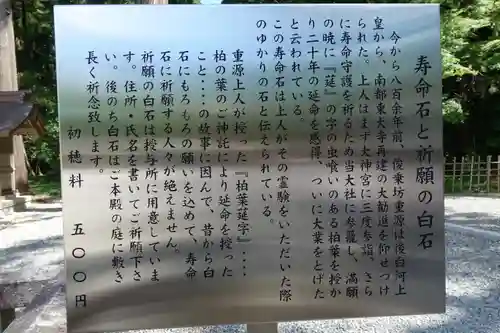 寿命石と祈願の白石
今から八百余年前、後乗坊重源は後白河上
皇から、南都東大寺再建の大勧進を仰せつけ
られた。上人はまず大神宮に三度参詣、さら
に寿命守護を祈るため当大社に参籠し、満願
の暁に『莚』の字の虫食いのある柏葉を授か
り二十年の延命を感得、ついに大業をとげた
と云われている。
この寿命石は上人がその霊験をいただいた際
のゆかりの石と伝えられている。
重源上人が授った『柏葉莚字』‥‥
柏の葉のご神託により延命を授った
こと‥‥の故事に因んで、昔から白
石にもろもろの願いを込めて、寿命
石に祈願する人々が絶えません。
祈願の白石は授与所に用意していま
す。住所・氏名を書いてご祈願下さ
い。後のち白石はご本殿の庭に敷き
長く祈念致します。
初穂料 五〇〇円